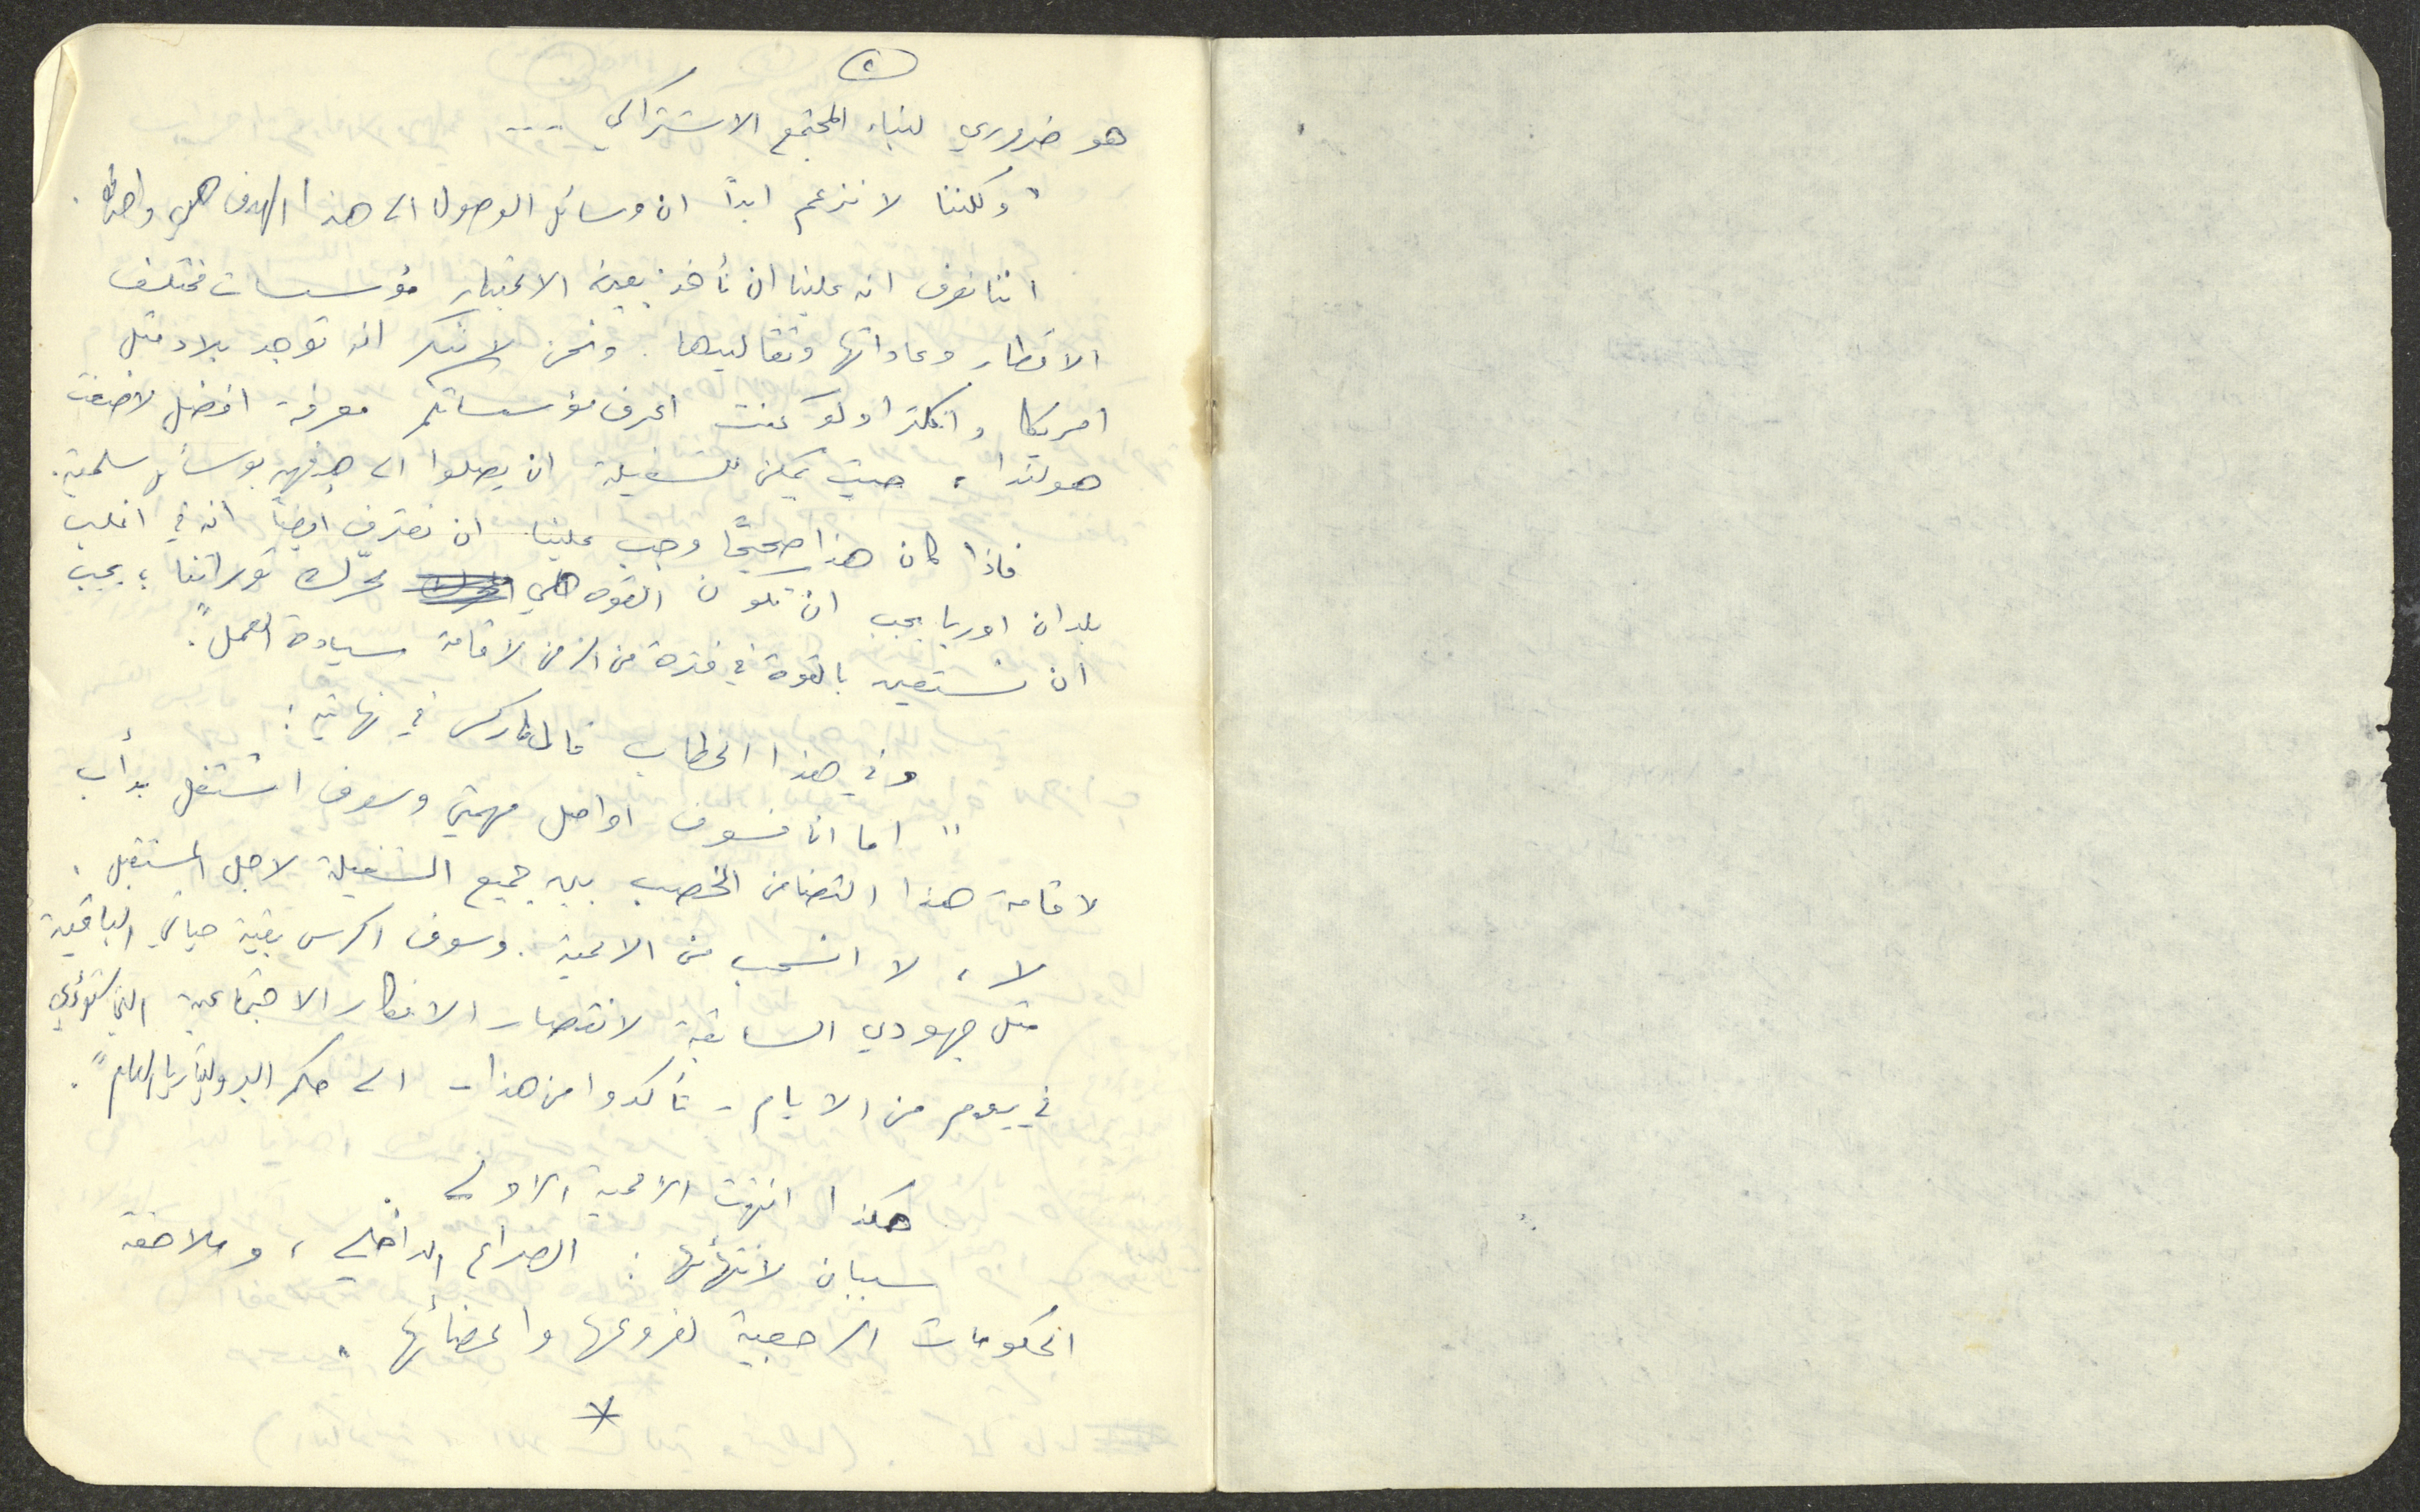 هو ضروري لبناء المجتمع الاشتراكي ...
"ولكننا لا نزعم ابداً ان وسائل الوصول الى هذا الهدف هي واحدة.
اننا نعرف انه علينا ان نأخذ بعين الاعتبار مؤسسات مختلف
الاقطار وعاداتها وتقاليدها. ونحن لا ننكر انه توجد بلاد مثل
امريكا وانكلترا ولو كنت اعرف مؤسساتكم معرفة افضل لاضفت
هولندا، حيث يمكن للشغيلة ان يصلوا الى هدفهم بوسائل سلمية.
فاذا كان هذا صحيحًا وجب علينا ان نعترف ايضاً انه في اغلب
بلدان اوربا يجب ان تكون القوة هي محرّك ثوراتنا؛ يجب
ان نستعين بالقوة في فترة من الزمن لاقامة سيادة العمل".
وفي هذا الخطاب قال ماركس في نهايته:
"اما انا فسوف اواصل مهمتي وسوف اشتغل بدأب
لاقامة هذا التضامن الخصب بين جميع الشغيلة لاجل المستقبل.
لا، لا انسحب من الاممية. وسوف اكرس بقية حياتي الباقية
مثل جهودي السابقة لانتصار الافكار الاجتماعية التي ستؤدي
في يوم من الايام - تأكدوا من هذا - الى حكم البروليتاريا العام".
هكذا انتهت الاممية الاولى.
سببان لانتهائها: الصراع الداخلي، وملاحقة
الحكومات الرجعية لفروعها واعضائها.
*